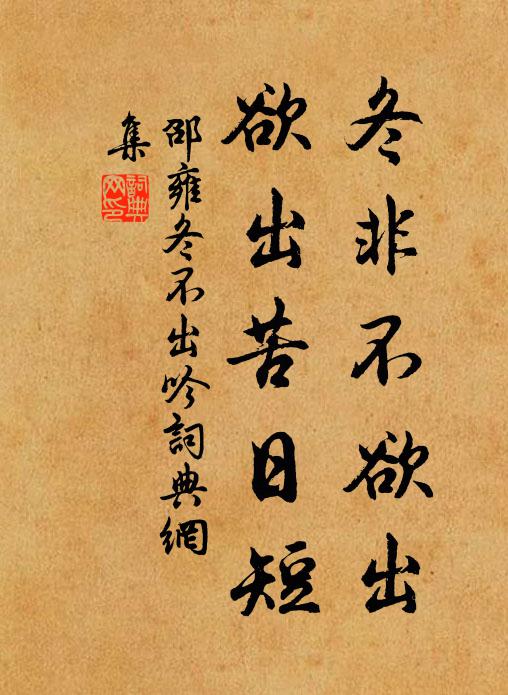 冬非不欲出
欲出苦日短
邵雍冬不出吟詞典網
集
詞典
网印